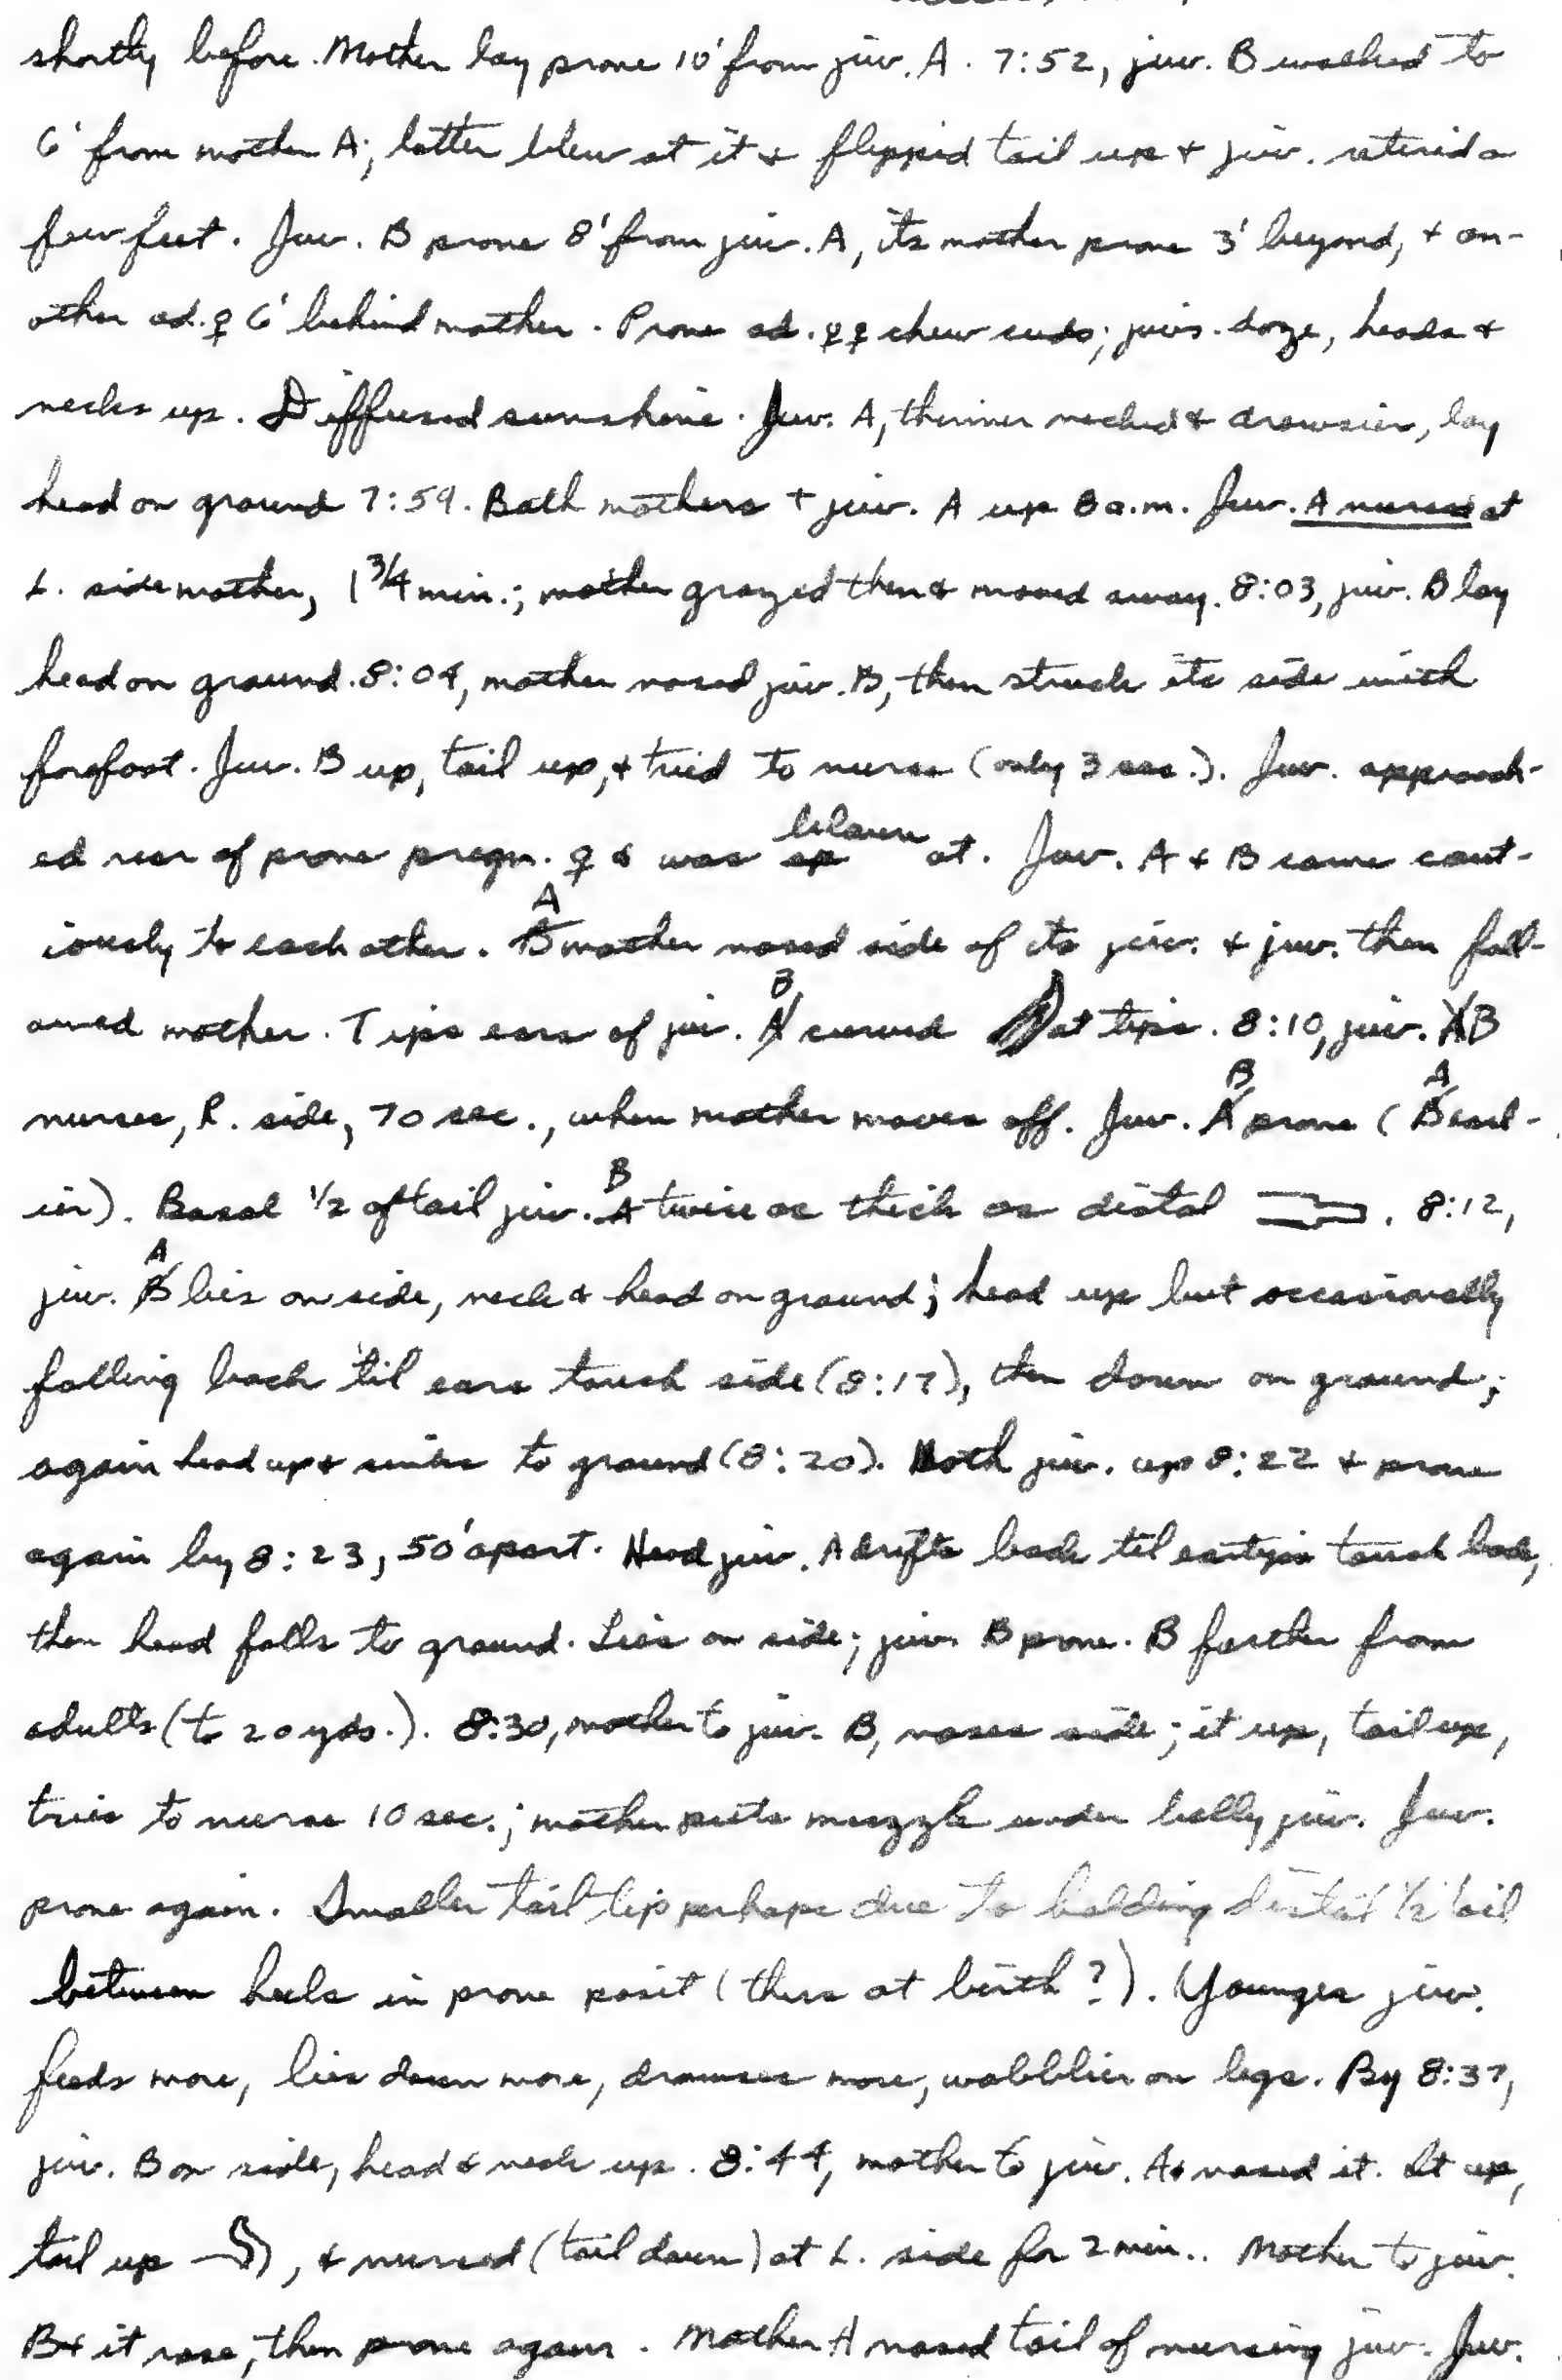 shortly before. Mother lay prone 10' from juv. A. 7:52, juv. B walked to
6' from mother A; latter blew at it & flipped tail up & juv. retired a
few feet. Juv. B prone 8' from juv. A, its mother prone 3' beyond, & an-
other ad. ♀ 6' behind mother. Prone ad. ♀♀ chew cuds; juvs. doze, heads &
necks up. Diffused sunshine. Juv. A, thinner necked & drowsier, lay
head on ground 7:59. Both mothers + juv. A up 8 a.m. Juv. A nurses at
L. side mother, 1 3/4 min.; mother grazed then & moved away. 8:03, juv. B lay
head on ground. 8:04, mother nosed juv. B, then struck its side with
forefoot. Juv. B up, tail up, & tried to nurse (only 3 sec.). Juv. approach-
ed rear of prone pregn. ♀ & was blown at. Juv. A & B came caut-
iously to each other. A mother nosed side of its juv. & juv. then foll-
owed mother. Tips ears of juv. B curved at tips. 8:10, juv. B
nurses, R. side, 70 sec., when mother moves off. Juv. B prone (A earl-
ier). Basal 1/2 of tail juv. B twice as thick as distal . 8:12,
juv. A lies on side, neck & head on ground; head up but occasionally
falling back 'til ears touch side (8:17), then down on ground;
again head up & sinks to ground (8:20). Both juv. up 8:22 & prone
again by 8:23, 50' apart. Head juv. A drifts back til eartips touch back,
then head falls to ground. Lies on side; juv. B prone. B farther from
adults (to 20 yds.). 8:30, mother to juv. B, noses side; it up, tail up,
tries to nurse 10 sec.; mother puts muzzle under belly juv. Juv.
prone again. Smaller tail tip perhaps due to holding distal 1/2 tail
between heels in prone posit (thus at birth?). Younger juv.
feeds more, lies down more, drowses more, wobblier on legs. By 8:37,
juv. B on side, head & neck up. 8:44, mother to juv. A & nosed it. It up,
tail up , & nursed (tail down) at L. side for 2 min.. Mother to juv.
B & it rose, then prone again. Mother A nosed tail of nursing juv. Juv.